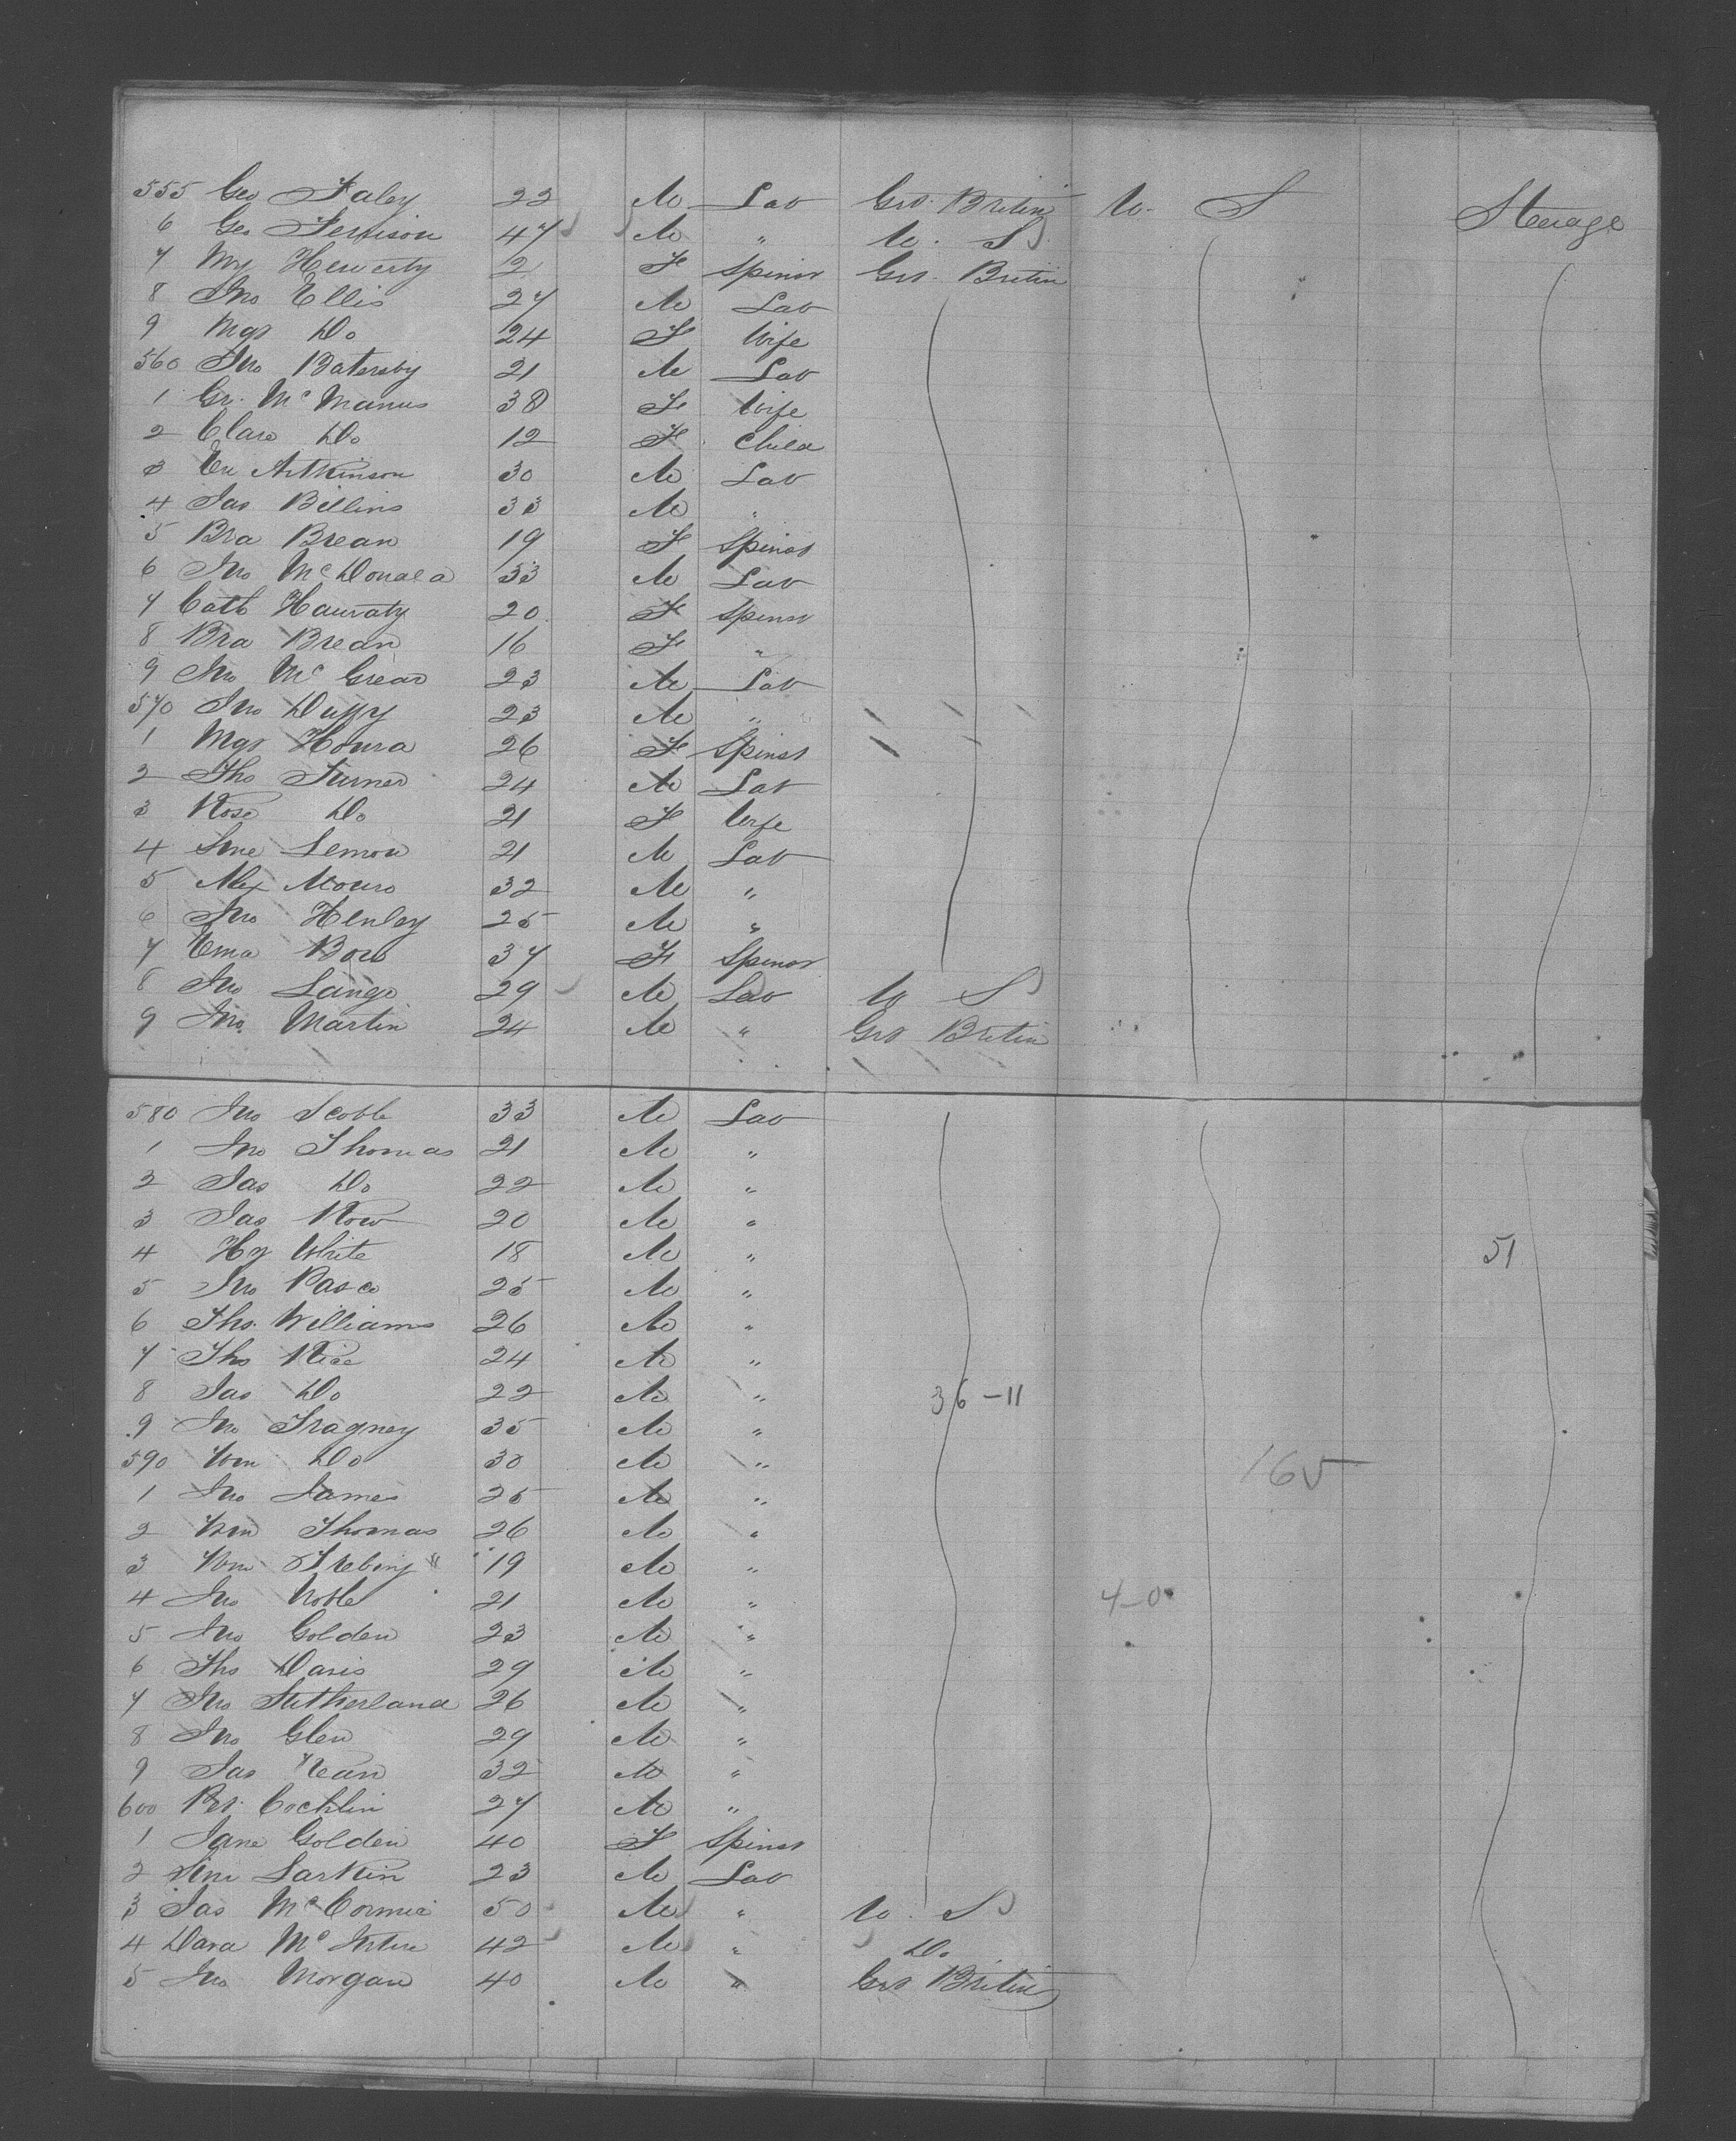 555 Geo Faley 22 M Lab Grt. Britin U. S Sterage
6 Geo Fenison 47 M " U. S
7 My Hewerty 2 F Spinsr Grt. Britin
8 Jno Ellis 27 M Lab
9 Mgt Do 24 F Wife
560 Jno Batersby 21 M Lab
1 Gr. McManus 38 F Wife
2 Clara Do 12 F Child
3 En Artkinson 30 M Lab
4 Jas Billins 33 M "
5 Bra Brean 19 F Spinst
6 Jno McDonald 33 M Lab
7 Cath Hauraty 20 F Spinsr
8 Bra Brean 16 F "
9 Jno McGrear 23 M Lab
570 Jno Duffy 23 M "
1 Mgt Houra 26 F Spinst
2 Tho Turner 24 M Lab
3 Rose Do 21 F Wife
4 Lemon 21 M Lab
5 Alex Mouro 32 M "
6 Jno Henley 25 M "
7 Ema Bow 37 F Spinsr
8 Jno Lange 29 M Lab U S
9 Jno. Martin 24 M " Grt Britin
580 Jno Scoble 33 M Lab
1 Jno Thomas 21 M "
2 Jas Do 22 M "
3 Jas Row 20 M "
4 Hy White 18 M " 51
5 Jno Pasco 25 M "
6 Tho. Williams 26 M "
7 Tho Rice 24 M "
8 Jas Do 22 M " 36-11
9 Jno Tragney 35 M "
590 Wm Do 30 M " 165
1 Jno James 25 M "
2 Wm Thomas 26 M "
3 Wm 19 M "
4 Jno Noble 21 M " 4-0
5 Jno Golden 23 M "
6 Tho Davis 29 M "
7 Jno Sutherland 26 M "
8 Jno Glen 29 M "
9 Jas Kean 32 M "
600 Pet. Cochlin 27 M "
1 Jane Golden 40 F Spinst
2 Larkin 23 M Lab
3 Jas McCormic 50 M " U. S
4 Dava McIntire 42 M " Do
5 Jno Morgan 40 M " Grt Britin